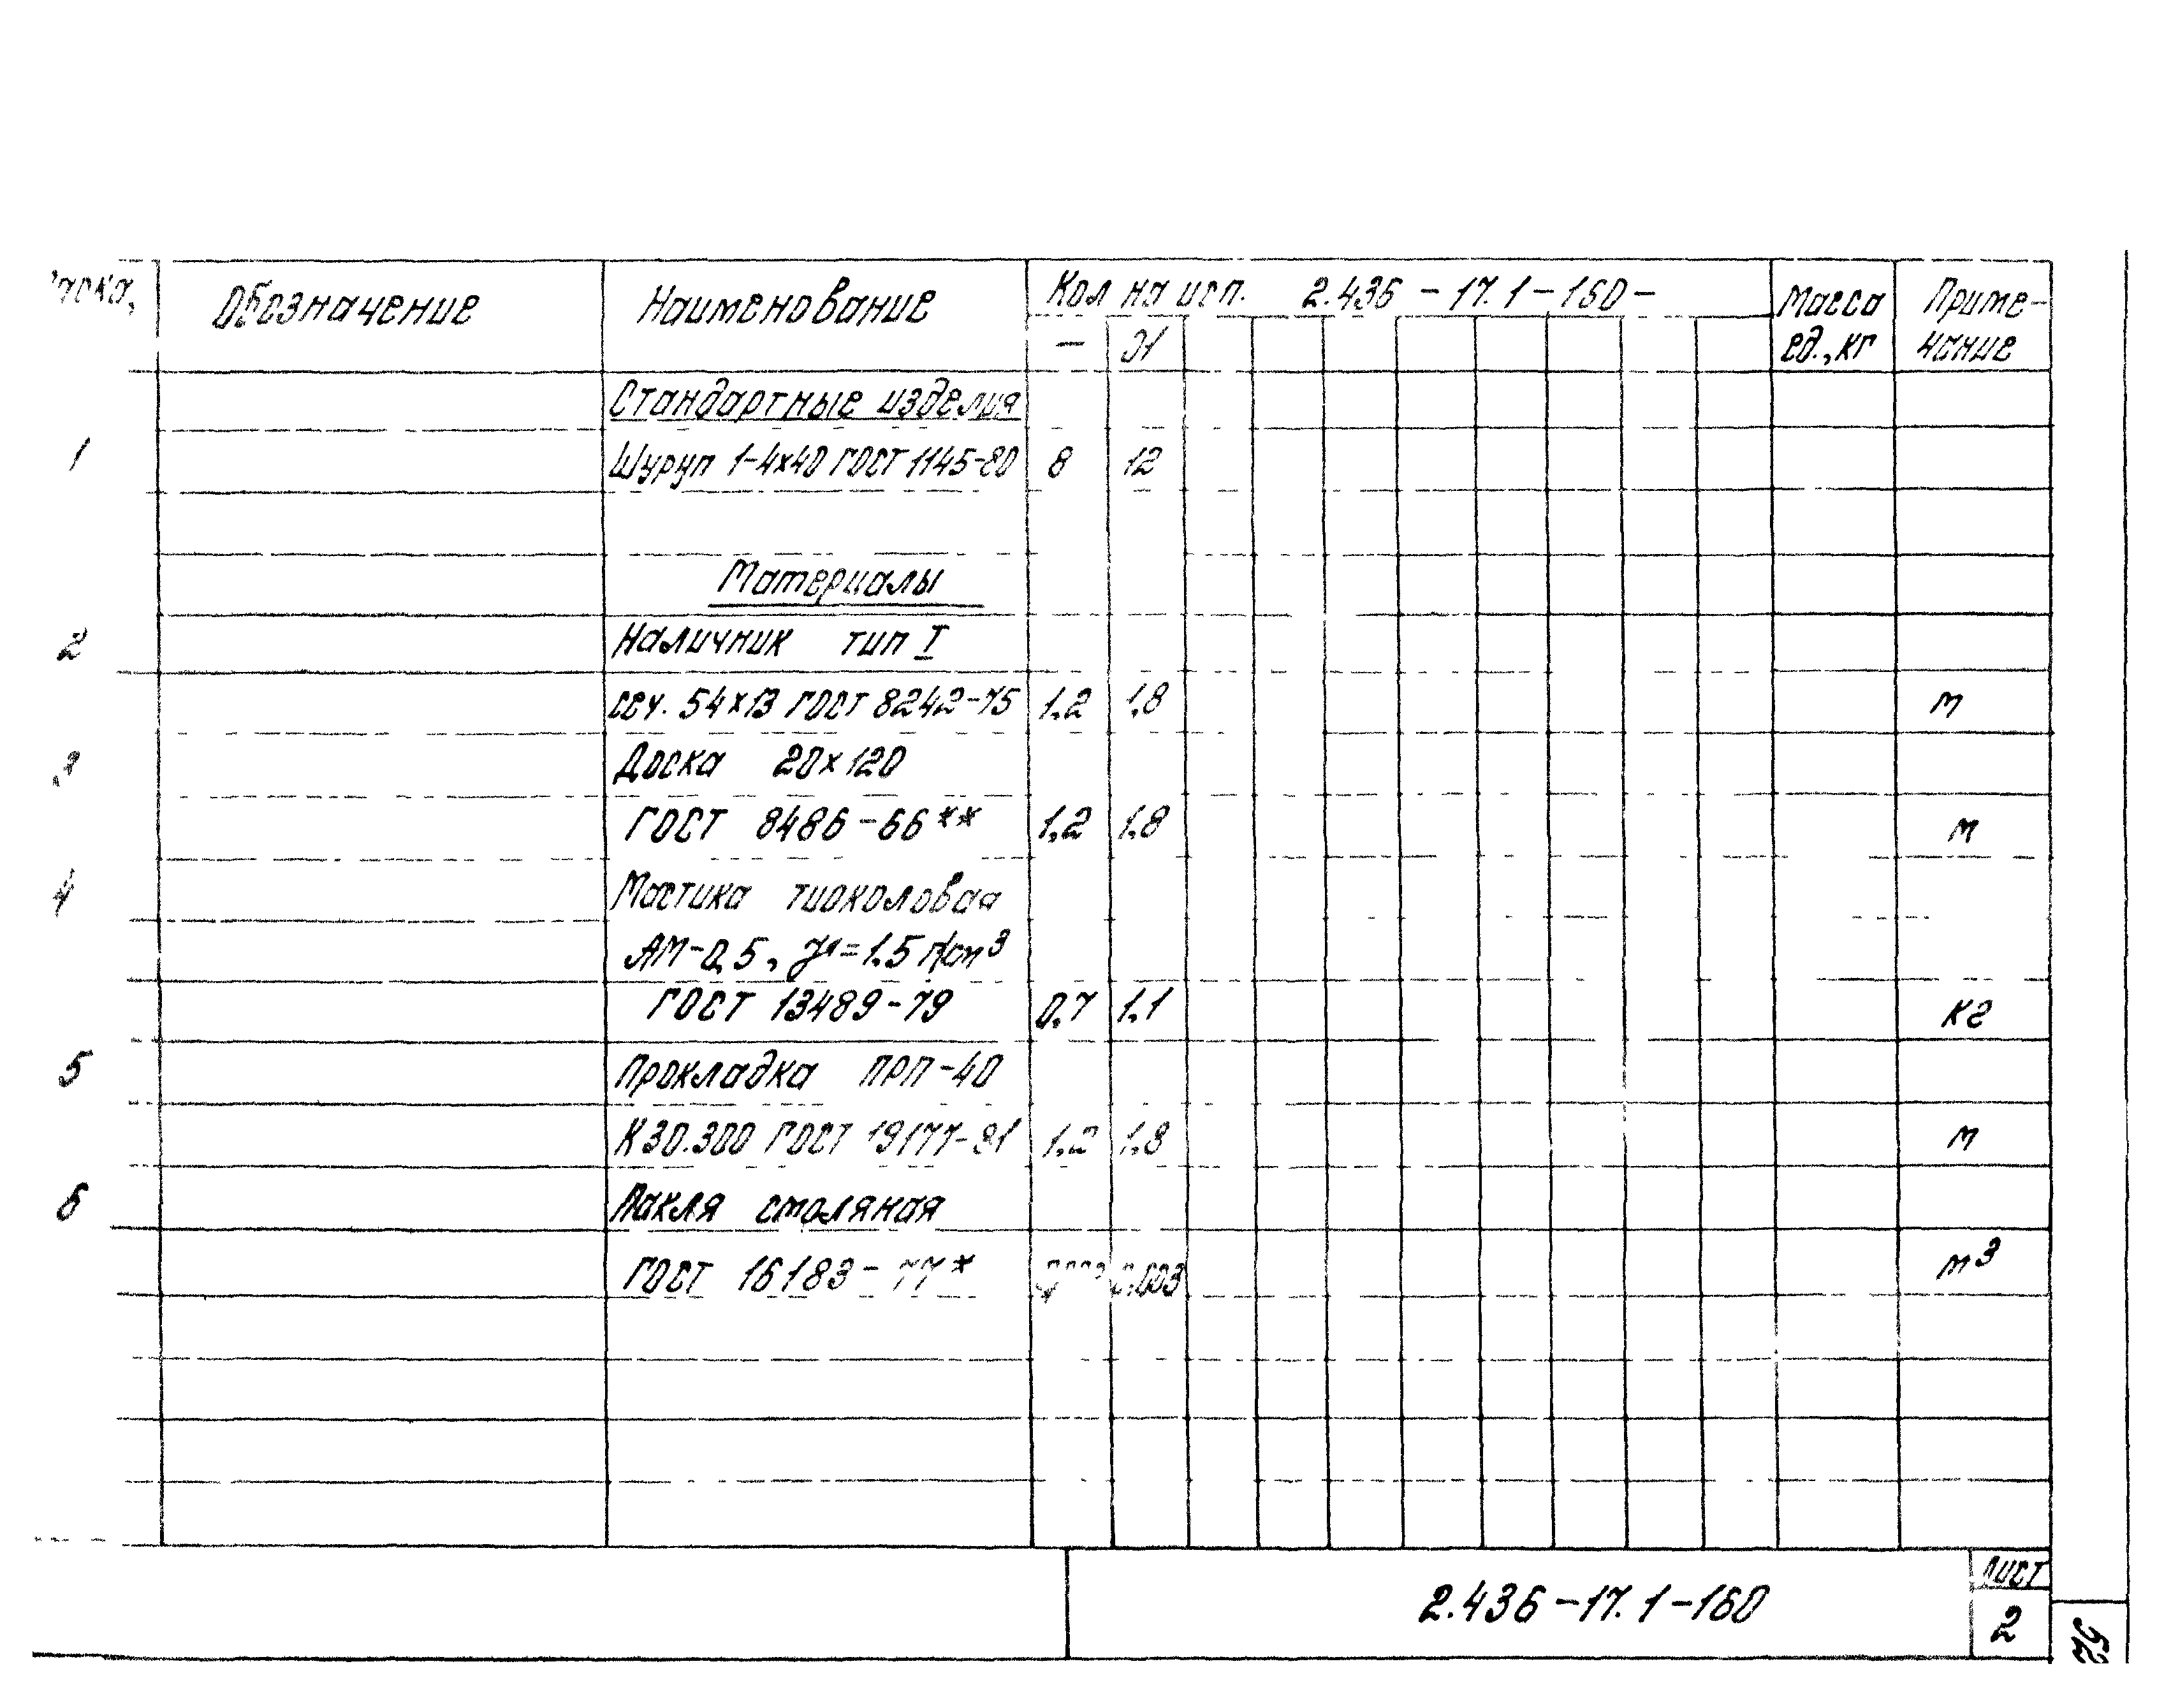 Обозначение Наименование Кол на исп. 2.436-17.1-160- Масса Приме-
— 01 ед.,кг чание
Стандартные изделия
1 Шуруп 1-4х40 ГОСТ 1145-80 8 12
Материалы
2 Наличник тип I
сеч. 54х13 ГОСТ 8242-75 1,2 1,8 м
3 Доска 20х120
ГОСТ 8486-66** 1,2 1,8 м
4 Мастика тиоколовая
АМ-0,5, γ=1.5 г/см³
ГОСТ 13489-79 0,7 1,1 кг
5 Прокладка ПРП-40
К30.300 ГОСТ 19177-81 1,2 1,8 м
6 Пакля смоляная
ГОСТ 16183-77* 0.003 м³
2.436-17.1-160
лист
2
52